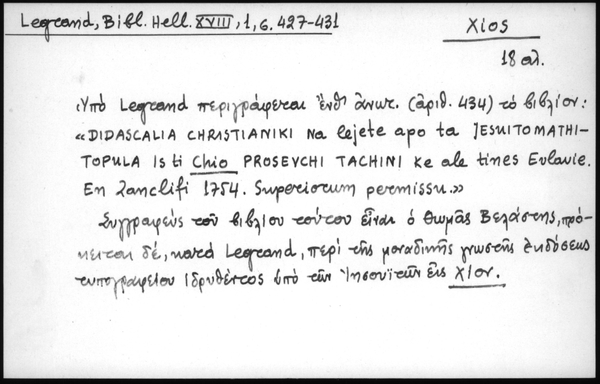 Legrand, Bibl. Hell. XVIII, 1, σ. 427-431
Χίος
18 αἰ.
Ὑπὸ Legrand περιγράφεται ἔνθ' ἀνωτ. (ἀριθ. 434) τὸ βιβλίον:
«DIDASCALIA CHRISTIANIKI Na lejete apo ta JESUITOMATHI-
TOPULA Is ti Chio PROSEVCHI TACHINI Ke ale tines Evlavie.
En Zanclifi 1754. Superiorum permissu.»
Συγγραφεὺς τοῦ βιβλίου τούτου εἶναι ὁ Θωμᾶς Βελάστης, πρό-
κειται δέ, κατὰ Legrand, περὶ τῆς μοναδικῆς γνωστῆς ἐκδόσεως
τυπογραφείου ἱδρυθέντος ὑπὸ τῶν Ἰησουϊτῶν εἰς Χίον.